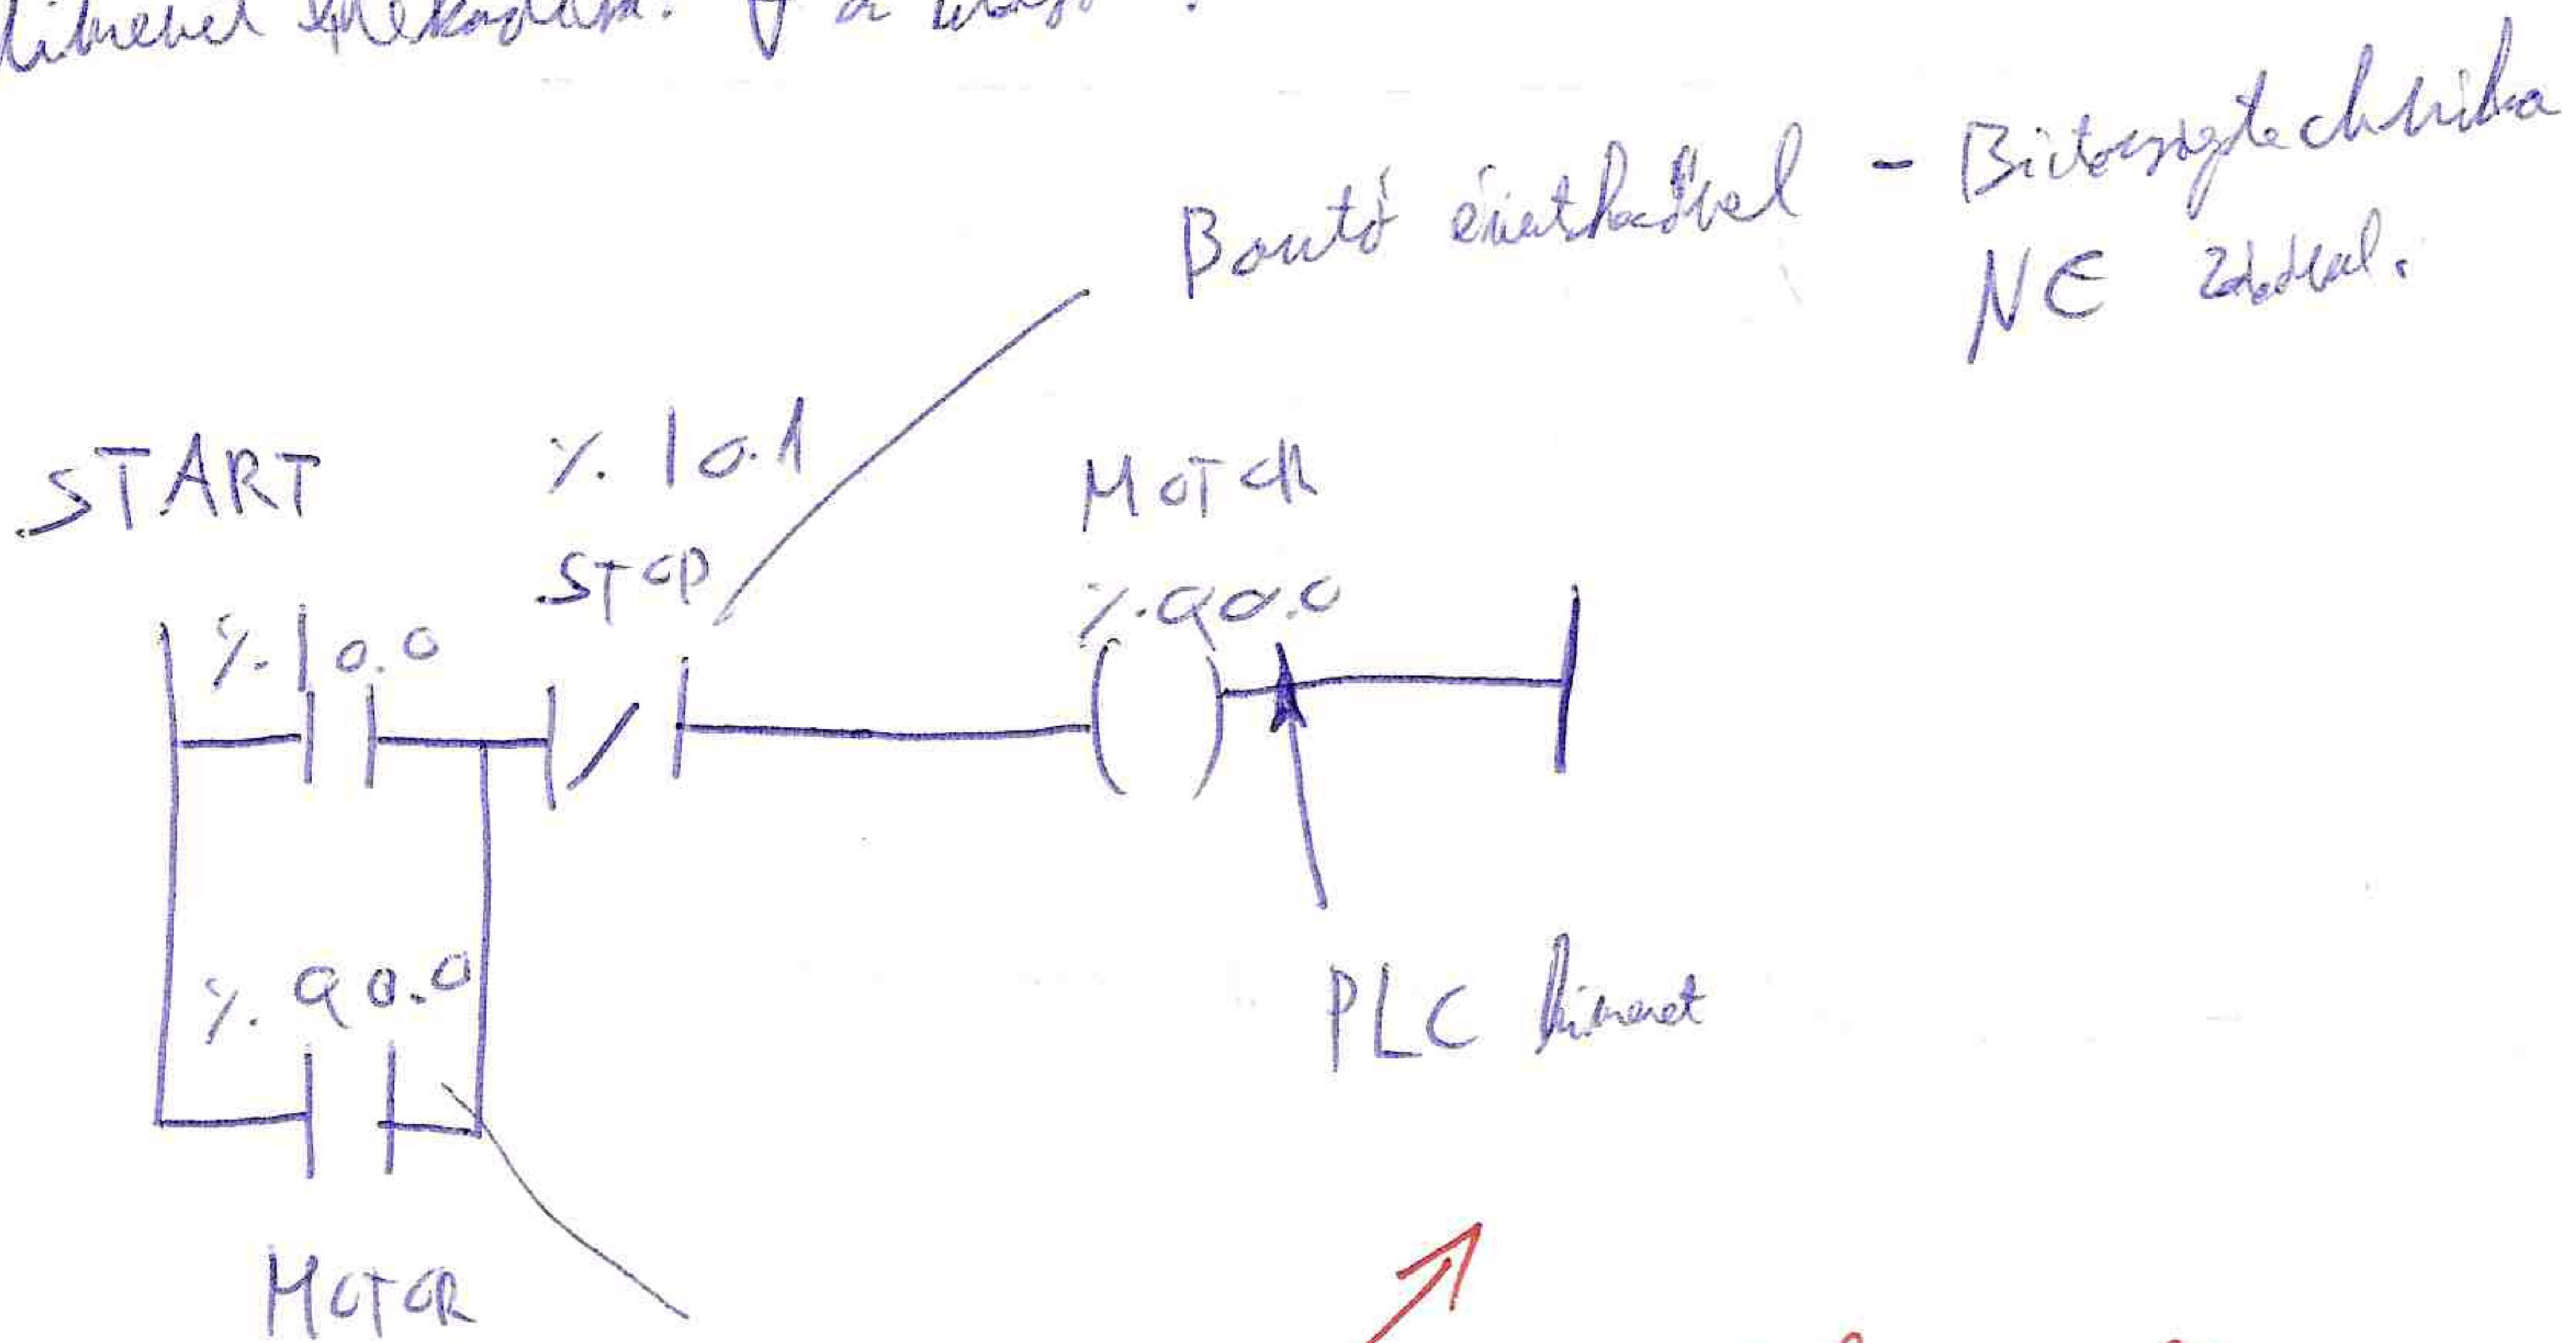 Bontó érintkezővel - Biztonságtechnika
NE záróval.
START
% I 0.1
STOP
MOTOR
% I 0.0
% Q 0.0
% Q 0.0
PLC kimenet
MOTOR